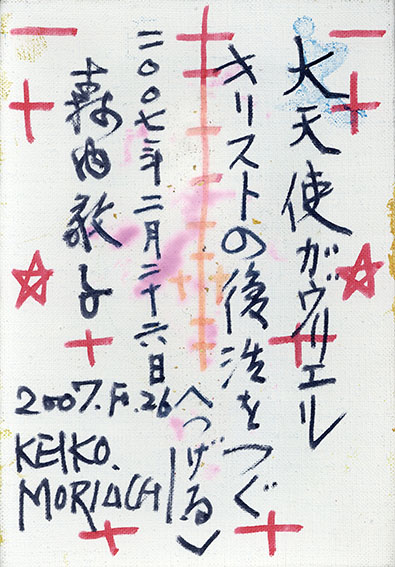 大天使ガヴリエル
キリストの復活をつぐ
〈つげる〉
二〇〇七年二月二十六日
森内敬子
2007. Fe. 26
KEIKO.
MORIUCHI